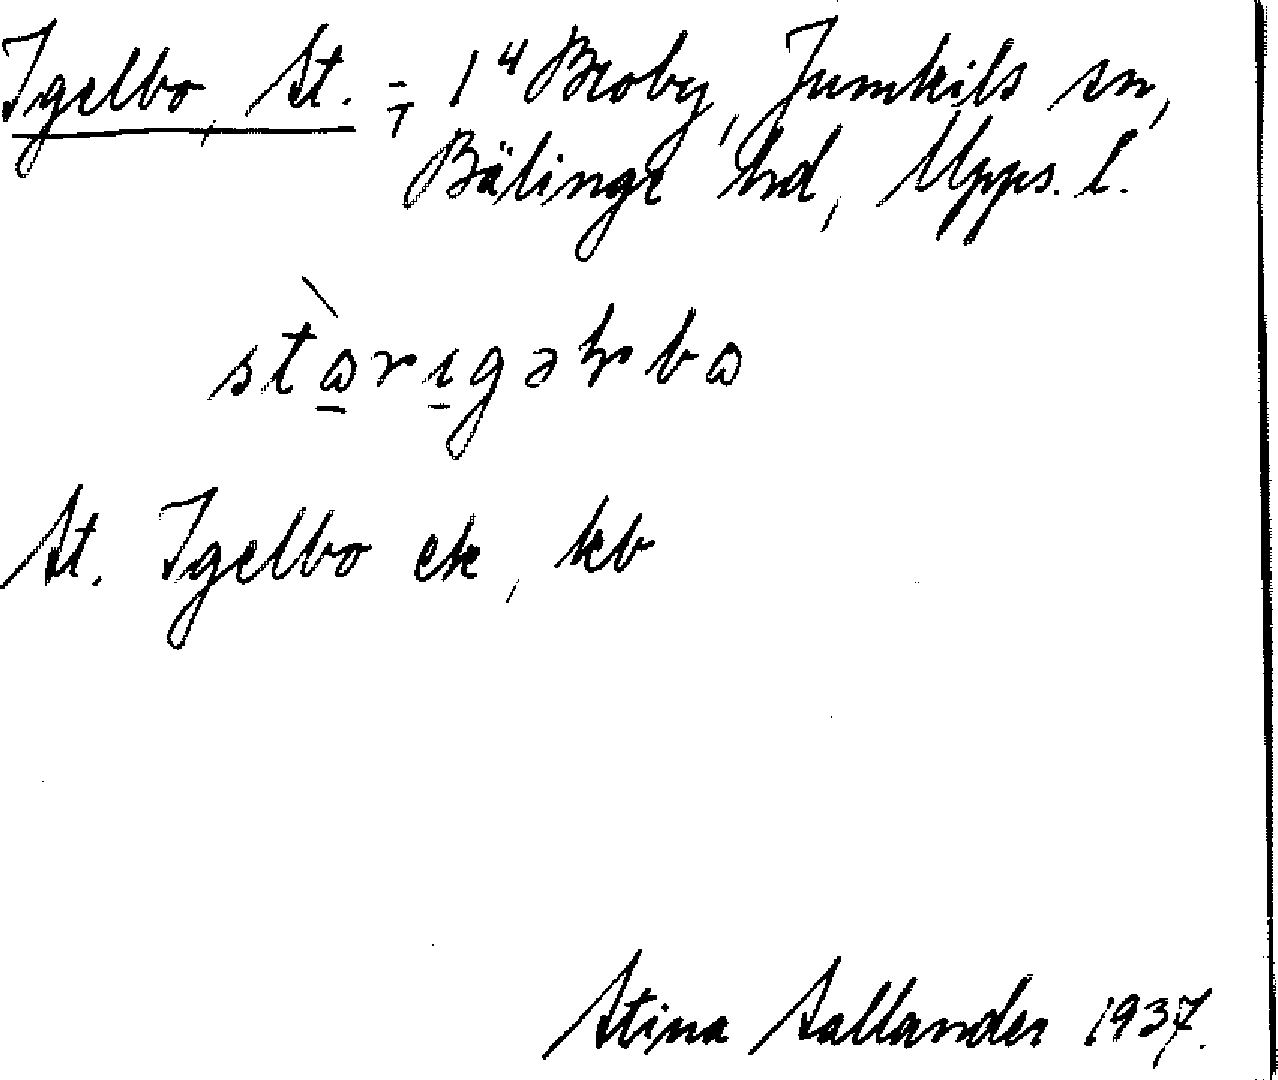 Igelbo, St. ÷ 1⁴ Broby, Jumkils sn,
Bälinge hd, Upps. l.
St. Igelbo ek, kb
Stina Sallander 1937.